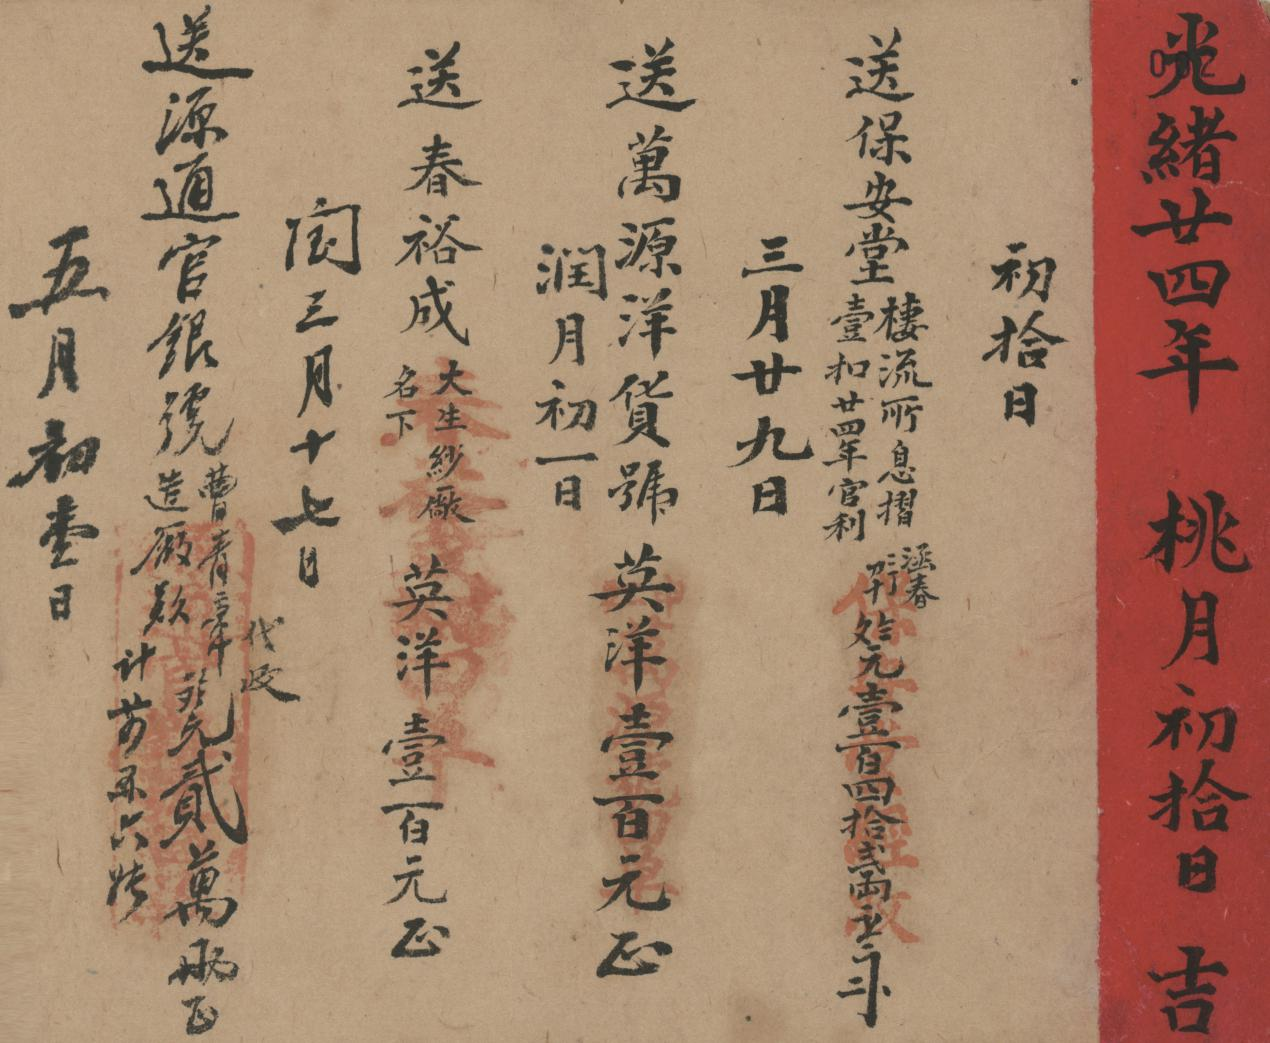 光緒廿四年 桃月初拾日 吉
初拾日
送保安堂
棲流所息摺
壹扣廿四年官利
涵春
元壹百四拾貳兩
三月廿九日
送萬源洋貨號 英洋壹百元正
潤月初一日
送春裕成
大生紗厰
名下
英洋壹百元正
閏三月十七日
送源通官銀號
曹青章
造厰款
代收
元貳萬兩正
五月初壹日